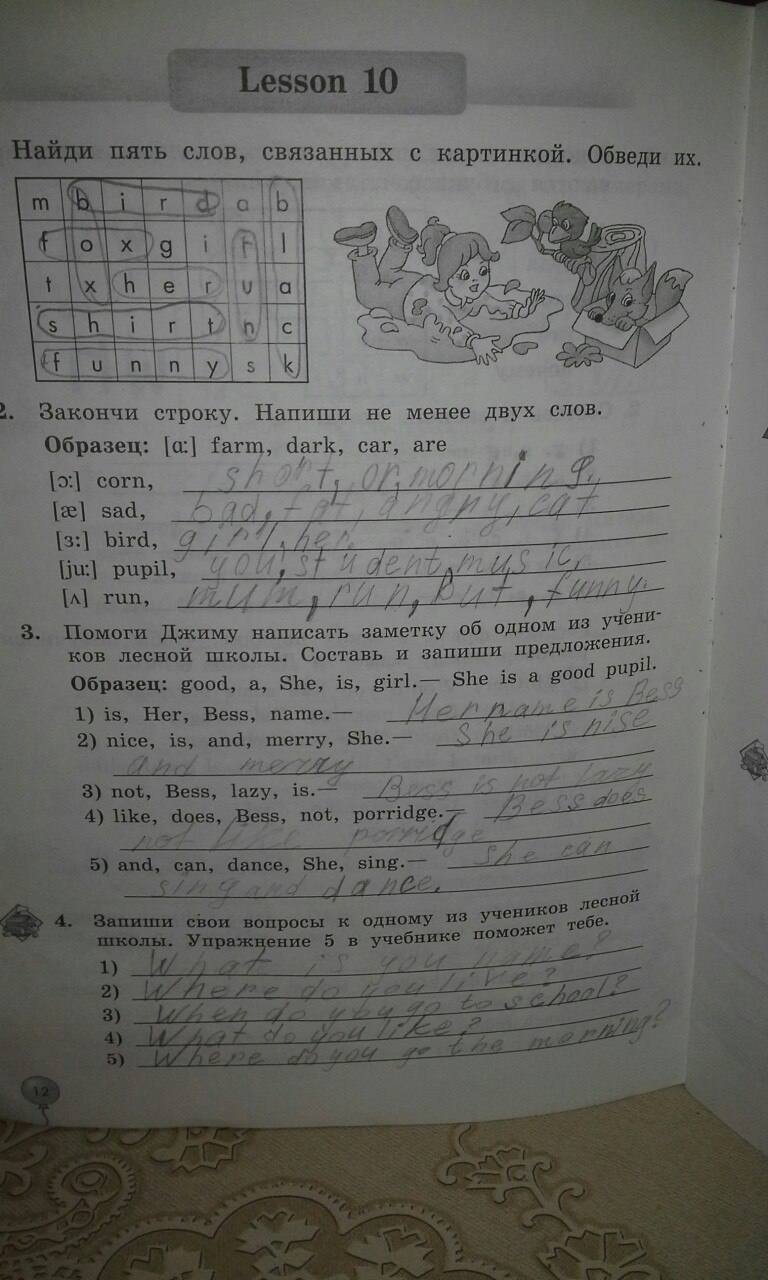 Lesson 10
Найди пять слов, связанных с картинкой. Обведи их.
m b i r d a b
f o x g i f l
t x h e r u a
s h i r t n c
f u n n y s k
2. Закончи строку. Напиши не менее двух слов.
Образец: [ɑ:] farm, dark, car, are
[ɔ:] corn, short, or, morning,
[æ] sad, bad, fat, angry, cat
[ɜ:] bird, girl, her
[ju:] pupil, you, student, music,
[ʌ] run, mum, run, but, funny.
3. Помоги Джиму написать заметку об одном из учени-
ков лесной школы. Составь и запиши предложения.
Образец: good, a, She, is, girl.— She is a good pupil.
1) is, Her, Bess, name.— Her name is Bess
2) nice, is, and, merry, She.— She is nise
and merry
3) not, Bess, lazy, is.— Bess is not lazy
4) like, does, Bess, not, porridge.— Bess does
not like porridge
5) and, can, dance, She, sing.— She can
sing and dance.
4. Запиши свои вопросы к одному из учеников лесной
школы. Упражнение 5 в учебнике поможет тебе.
1) What is you name?
2) Where do you live?
3) When do you go to school?
4) What do you like?
5) Where do you go the morning?
12